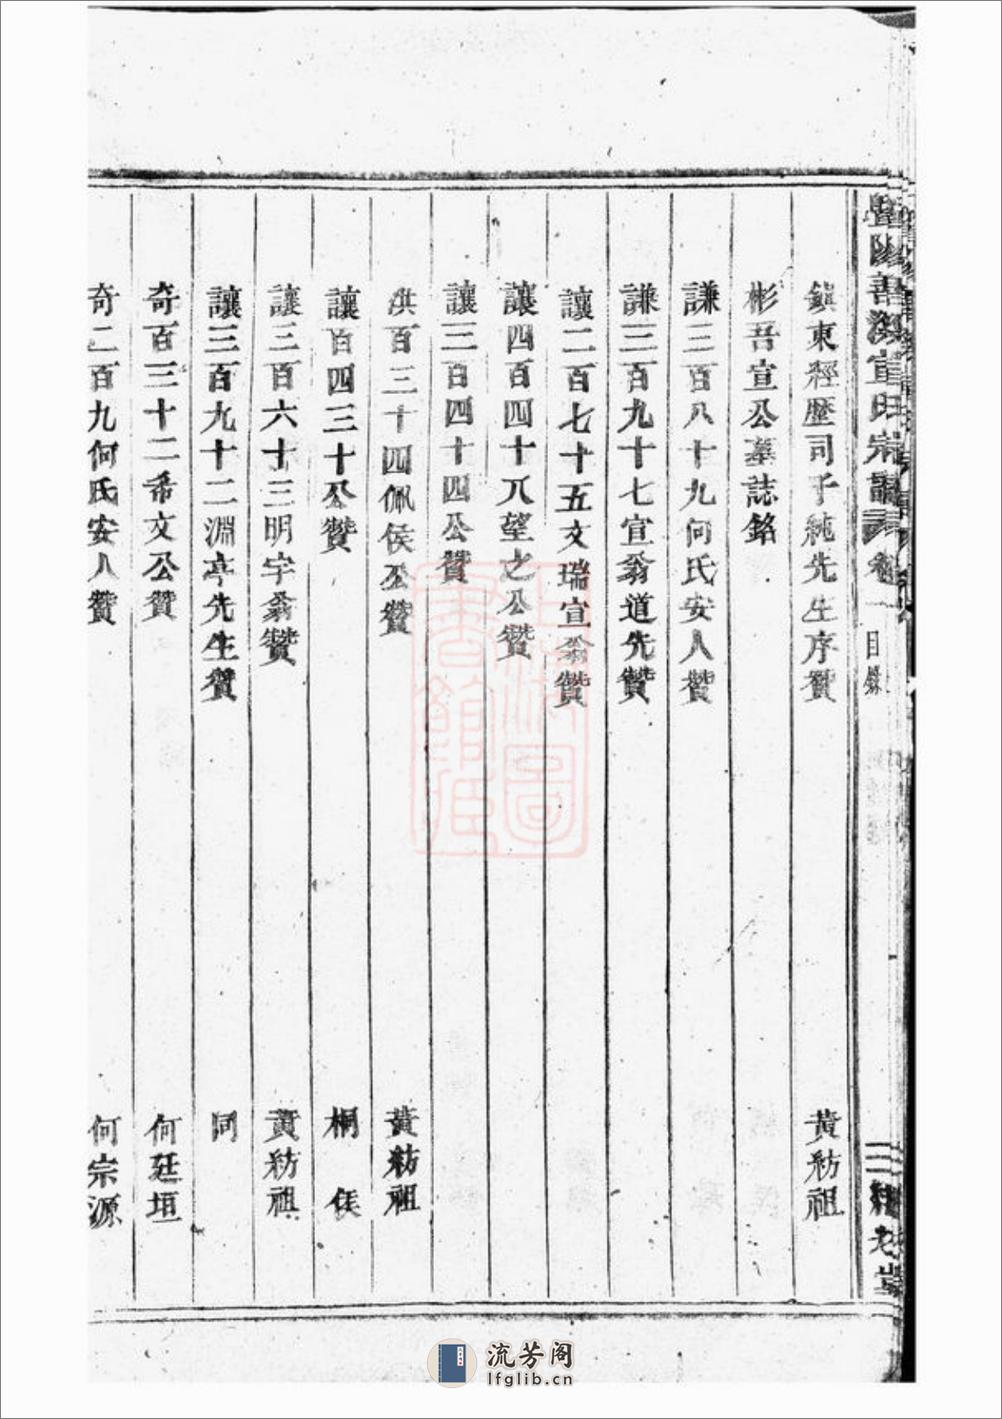 鎮東經歷司子純先生序贊 黃紡祖
彬吾宣公墓誌銘
謙三百八十九何氏安人贊
謙三百九十七宣翁道先贊
讓二百七十五文瑞宣翁贊
讓四百四十八望之公贊
讓三百四十四公贊
洪百三十四佩侯公贊 黃紡祖
讓百四三十公贊 桐侯
讓三百六十三明宇翁贊 黃紡祖
讓三百九十二淵亭先生贊 同
奇百三十二希文公贊 何廷垣
奇二百九何氏安人贊 何宗源
宣氏宗譜 卷一 目錄
上海圖書館藏
流芳阁
lfglib.cn